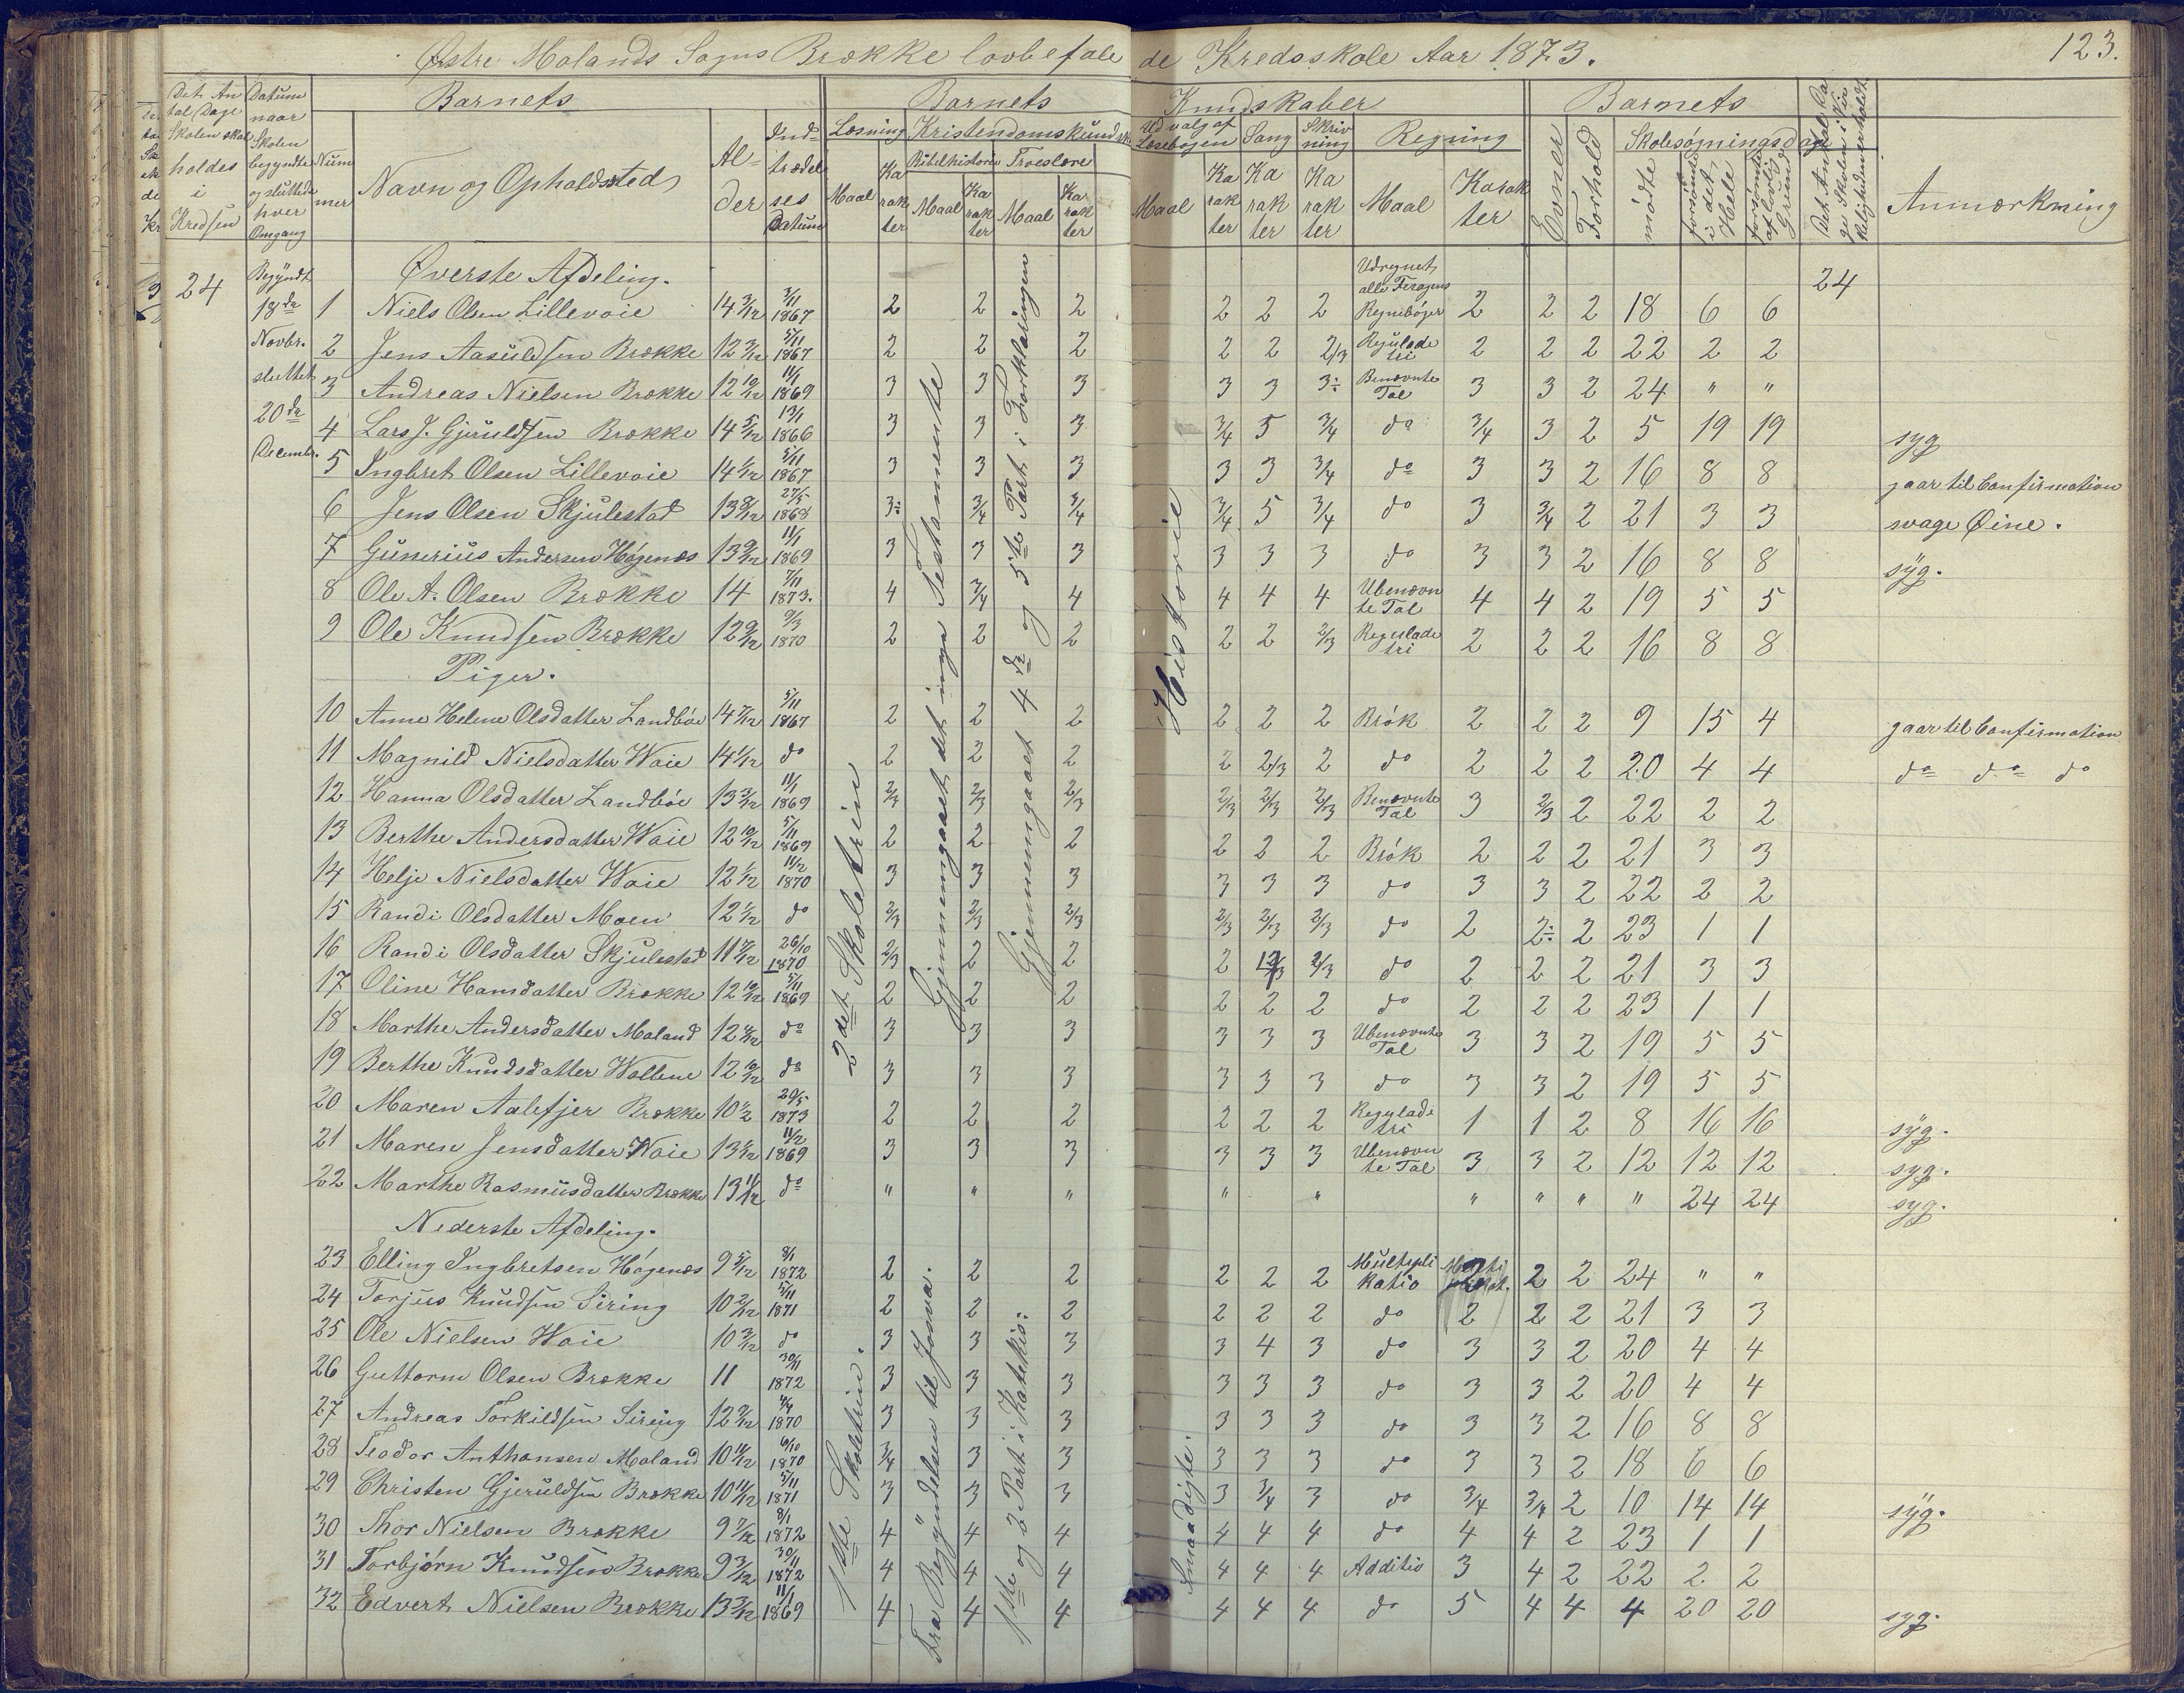 Østre Molands Sogns Brække lovbefalede Kredsskole Aar 1873. 123.
Det Antal Dage Skolen skal holdes i Kredsen
Datum naar Skolen begyndte og sluttede hver Omgang
Barnets
Nummer
Navn og Opholdssted
Alder
Indtrædelses Datum
Barnets Kundskaber
Læsning Maal Karakter
Kristendomskundsk.
Bibelhistorie Maal Karakter
Troeslære Maal Karakter
Udvalg af Læsebogen Maal Karakter
Sang Karakter
Skrivning Karakter
Regning Maal Karakter
Barnets
Evner
Forhold
Skolesøgningsdage
mødte
forsømte i det Hele
forsømte af lovlig Grund
Det Antal Dage Skolen i Virkeligheden er holdt
Anmærkning
24 Begyndt 18de Novbr. sluttet 20de Decembr.
24
2det Skoletrin
Gjennemgaaet det nye Testamente
Gjennemgaaet 4de og 5te Part i Forklaringen
Historie
Øverste Afdeling.
1 Niels Olsen Lillevoie 14 3/12 3/11 1867 2 2 2 2 2 2 Udregnet alle Feragens Regnebøger 2 2 2 18 6 6
2 Jens Aasuldsen Brække 12 3/12 5/11 1867 2 2 2 2 2 2/3 Reguladetri 2 2 2 22 2 2
3 Andreas Nielsen Brække 12 10/12 11/1 1869 3 3 3 3 3 3÷ Benævnte Tal 3 3 2 24 " "
4 Lars J. Gjeruldsen Brække 14 5/12 13/1 1866 3 3 3 3/4 5 3/4 do 3/4 3 2 5 19 19 syg
5 Ingbret Olsen Lillevoie 14 1/12 5/11 1867 3 3 3 3 3 3/4 do 3 3 2 16 8 8 gaar til Confirmation
6 Jens Olsen Skjulestad 13 8/12 27/5 1868 3÷ 3/4 3/4 3/4 5 3/4 do 3 3/4 2 21 3 3 svage Øine.
7 Gunerius Andersen Høgenæs 13 9/12 11/1 1869 3 3 3 3 3 3 do 3 3 2 16 8 8 syg.
8 Ole A. Olsen Brække 14 7/11 1873. 4 3/4 4 4 4 4 Ubenævnte Tal 4 4 2 19 5 5
9 Ole Knudsen Brække 12 9/12 9/3 1870 2 2 2 2 2 2/3 Reguladetri 2 2 2 16 8 8
Piger.
10 Anne Helene Olsdatter Landbøe 14 7/12 5/11 1867 2 2 2 2 2 2 Brøk 2 2 2 9 15 4 gaar til Confirmation
11 Magnild Nielsdatter Waie 14 1/12 do 2 2 2 2 2/3 2 do 2 2 2 20 4 4 do do do
12 Hanna Olsdatter Landbøe 13 3/12 11/1 1869 2/3 2/3 2/3 2/3 2/3 2/3 Benævnte Tal 3 2/3 2 22 2 2
13 Berthe Andersdatter Waie 12 10/12 5/11 1869 2 2 2 2 2 2 Brøk 2 2 2 21 3 3
14 Helje Nielsdatter Waie 12 1/12 11/2 1870 3 3 3 3 3 3 do 3 3 2 22 2 2
15 Randi Olsdatter Moen 12 1/12 do 2/3 2/3 2/3 2/3 2/3 2/3 do 2 2÷ 2 23 1 1
16 Randi Olsdatter Skjulestad 11 4/12 26/10 1870 2/3 2 2 2 2/3 2/3 do 2 2 2 21 3 3
17 Oline Hansdatter Brække 12 10/12 5/11 1869 2 2 2 2 2 2 do 2 2 2 23 1 1
18 Marthe Andersdatter Maland 12 4/12 do 3 3 3 3 3 3 Ubenævnte Tal 3 3 2 19 5 5
19 Berthe Knudsdatter Wallene 12 10/12 do 3 3 3 3 3 3 do 3 3 2 19 5 5
20 Maren Aalefjer Brække 10 1/2 29/5 1873 2 2 2 2 2 2 Reguladetri 1 1 2 8 16 16 syg.
21 Maren Jensdatter Waie 13 1/12 11/2 1869 3 3 3 3 3 3 Ubenævnte Tal 3 3 2 12 12 12 syg.
22 Marthe Rasmusdatter Brække 13 11/12 do " " " " " " " " " 24 24 syg.
Nederste Afdeling.
1ste Skoletrin.
Fra Begyndelsen til Josva.
1ste og 2 Part i Katekis:
Smaadigte.
23 Elling Ingbretsen Høgenæs 9 5/12 8/1 1872 2 2 2 2 2 2 Multiplikatio 2 2 24 " "
24 Torjus Knudsen Siring 10 2/12 5/11 1871 2 2 2 2 2 2 do 2 2 2 21 3 3
25 Ole Nielsen Waie 10 3/12 do 3 3 3 3 4 3 do 3 3 2 20 4 4
26 Guttorm Olsen Brække 11 30/11 1872 3 3 3 3 3 3 do 3 3 2 20 4 4
27 Andreas Torkildsen Siring 12 9/12 1870 3 3 3 3 3 3 do 3 3 2 16 8 8
28 Teodor Anthonsen Maland 10 11/12 6/10 1870 3/4 3 3 3 3 3 do 3 3 2 18 6 6
29 Christen Gjeruldsen Brække 10 11/12 5/11 1871 3 3 3 3 3/4 3 do 3/4 3/4 2 10 14 14 syg.
30 Thor Nielsen Brække 9 7/12 8/1 1872 4 4 4 4 4 4 do 4 4 2 23 1 1
31 Torbjørn Knudsen Brække 9 3/12 30/11 1872 4 4 4 4 4 4 Additio 3 4 2 22 2 2
32 Edvert Nielsen Brække 13 3/12 11/1 1869 4 4 4 4 4 4 do 5 4 4 4 20 20 syg.